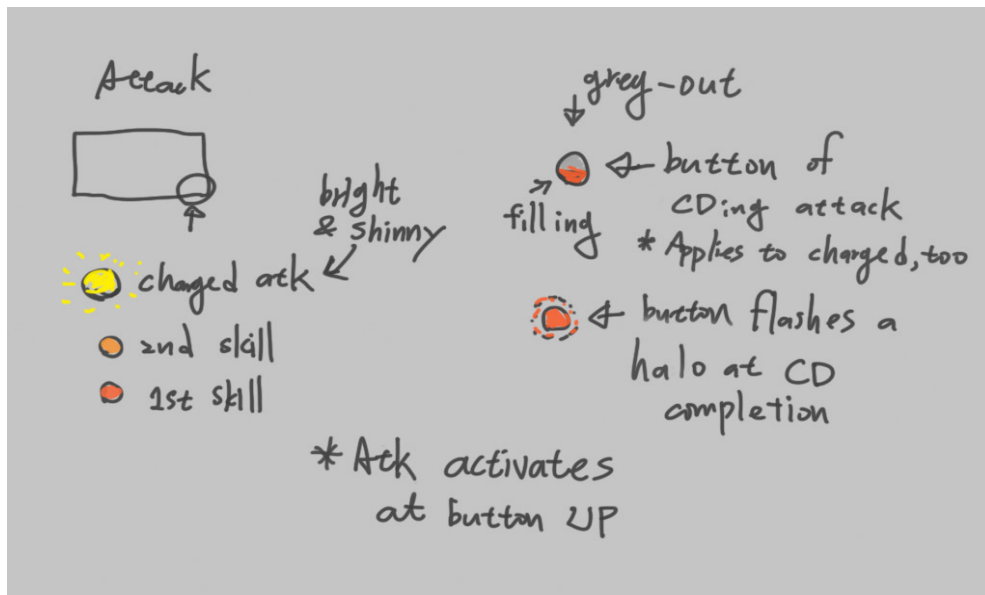 Attack
bright
& shinny
charged atk
2nd skill
1st skill
grey-out
filling
button of
CDing attack
* Applies to charged, too
button flashes a
halo at CD
completion
* Atk activates
at button UP